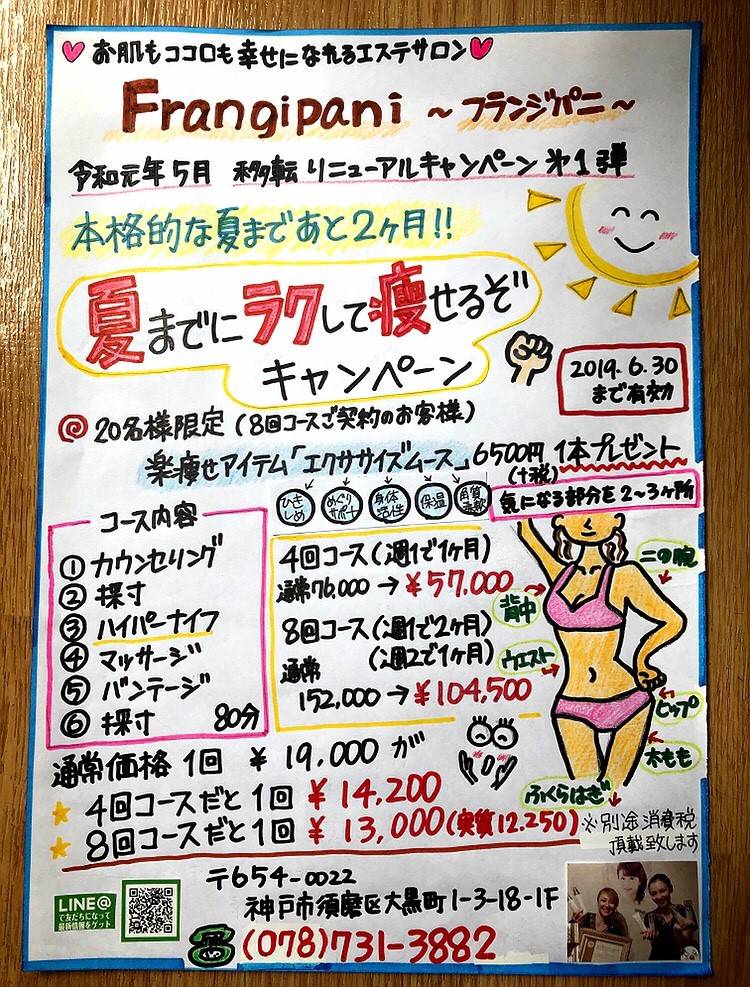 お肌もココロも幸せになれるエステサロン
Frangipani ～フランジパニ～
令和元年5月 移転リニューアルキャンペーン 第1弾
本格的な夏まであと2ヶ月!!
夏までにラクして痩せるぞ
キャンペーン
2019.6.30
まで有効
20名様限定(8回コースご契約のお客様)
楽痩せアイテム「エクササイズムース」6500円 1本プレゼント
(+税)
ひきしめ
めぐりサポート
身体活性
保温
角質柔軟
気になる部分を2～3ヶ所
コース内容
① カウンセリング
② 採寸
③ ハイパーナイフ
④ マッサージ
⑤ バンテージ
⑥ 採寸 80分
4回コース(週1で1ヶ月)
通常76,000→¥57,000
8回コース(週1で2ヶ月)
(週2で1ヶ月)
通常
152,000→¥104,500
二の腕
背中
ウエスト
ヒップ
太もも
ふくらはぎ
通常価格1回 ¥19,000が
4回コースだと1回 ¥14,200
8回コースだと1回 ¥13,000(実質12,250)
※別途消費税
頂戴致します
LINE@
で友だちになって
最新情報をゲット
〒654-0022
神戸市須磨区大黒町1-3-18-1F
(078)731-3882